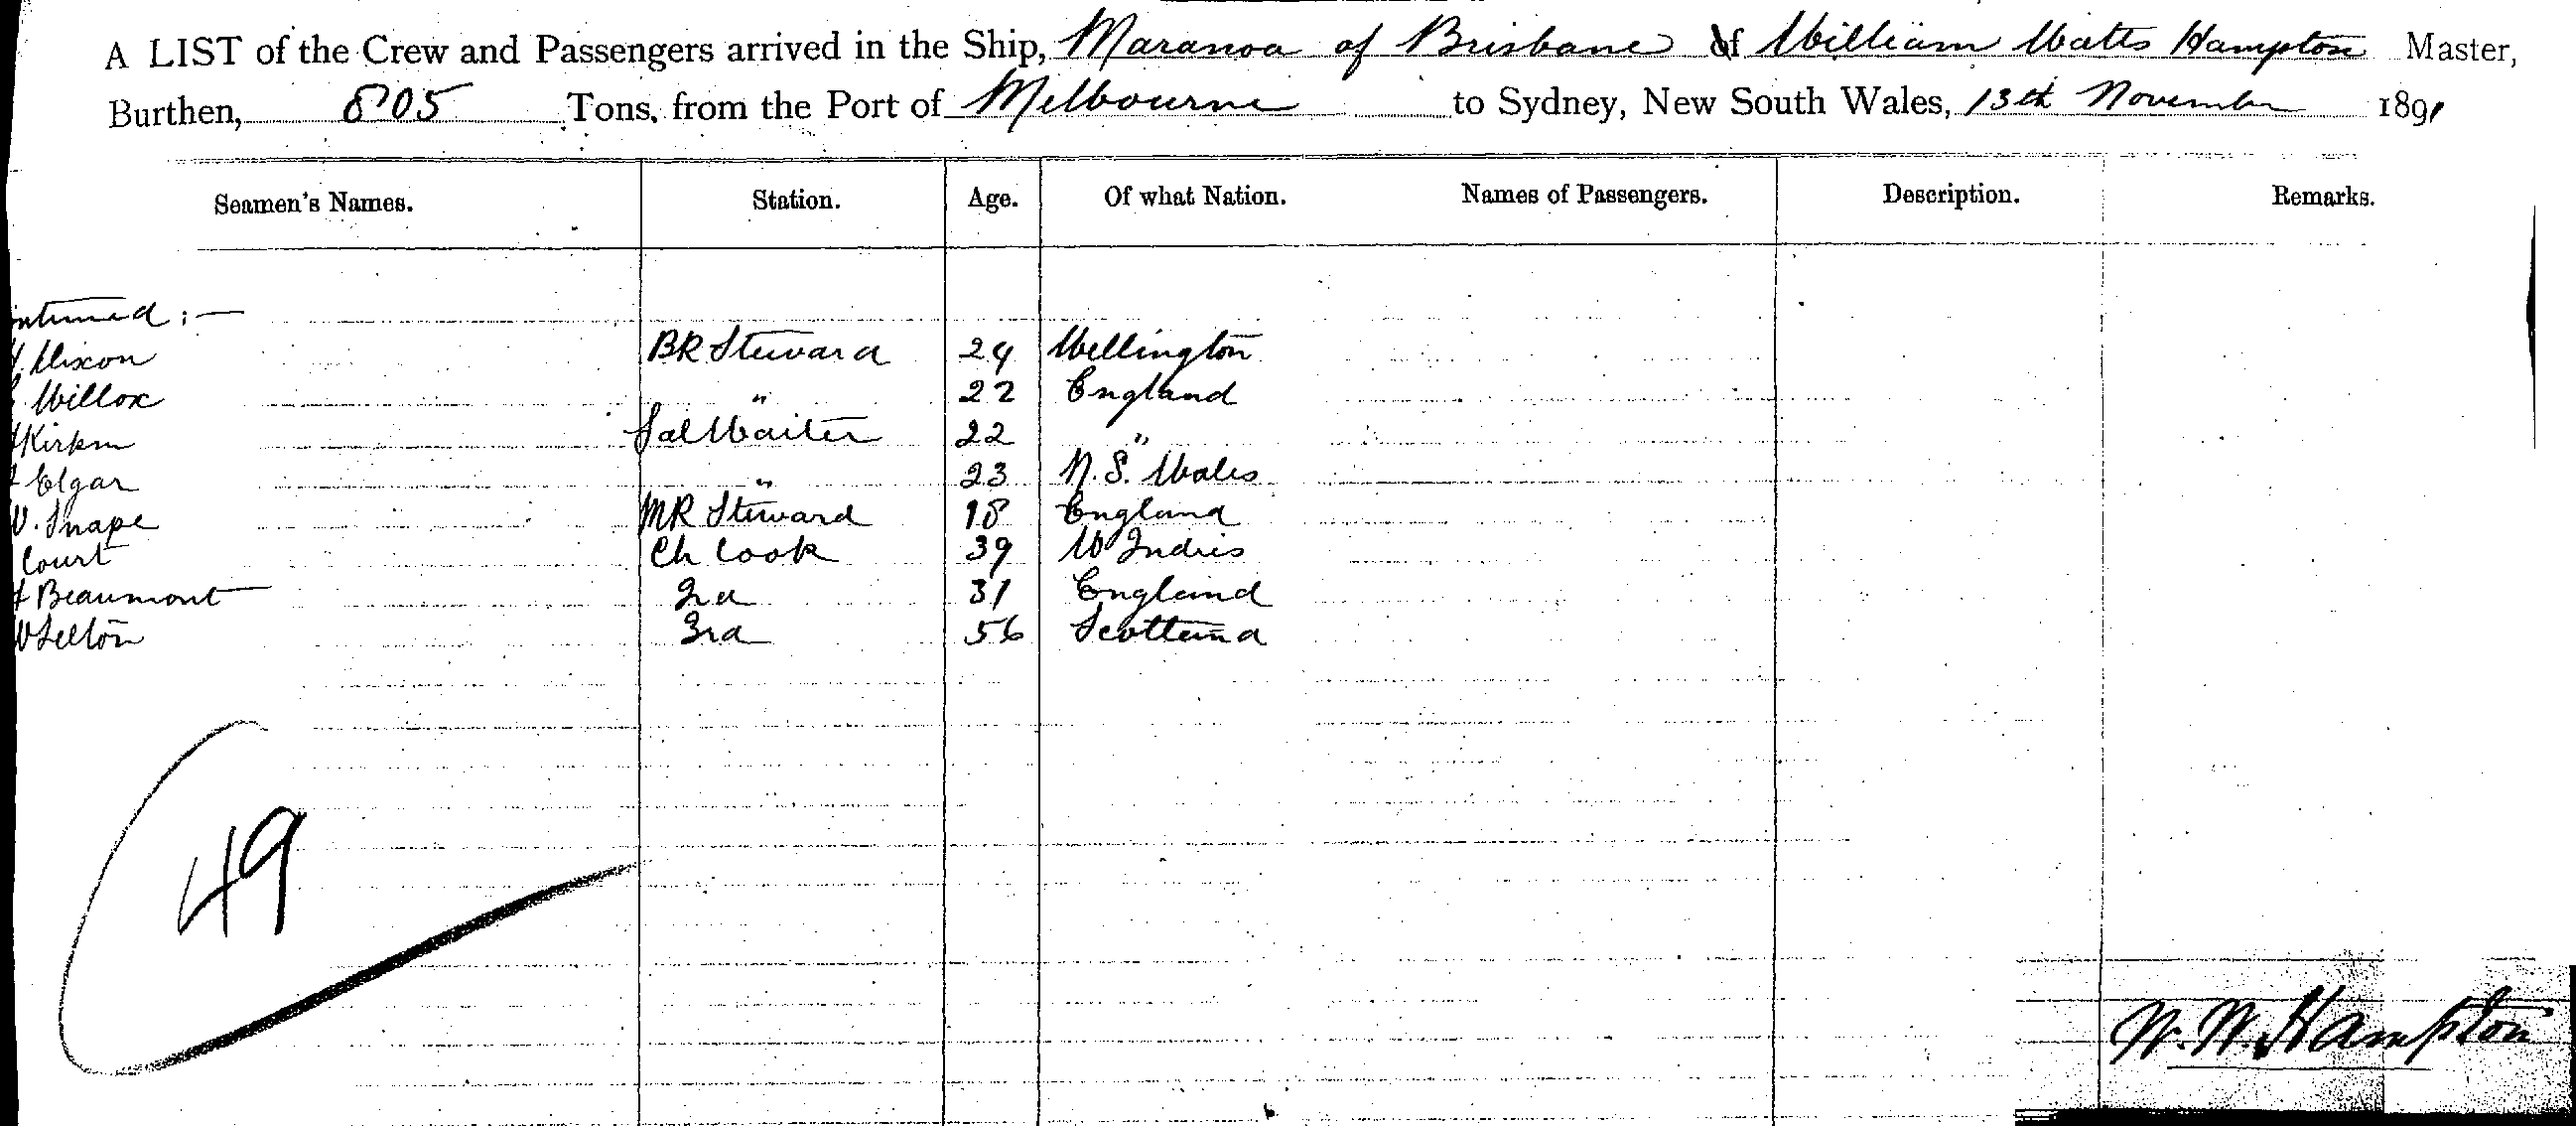 A LIST of the Crew and Passengers arrived in the Ship, Maranoa of Brisbane of William Watts Hampton Master,
Burthen, 805 Tons, from the Port of Melbourne to Sydney, New South Wales, 13th November 1891
Seamen's Names. Station. Age. Of what Nation. Names of Passengers. Description. Remarks.
ntinued :—
Nixon BR Steward 24 Wellington
Willox " 22 England
Sal Waiter 22 "
Elgar " 23 N. S. Wales
W. Snape MR Steward 18 England
Court Ch Cook 39 W Indies
Beaumont 2nd 31 England
3rd 56 Scotland
49
W. W. Hampton